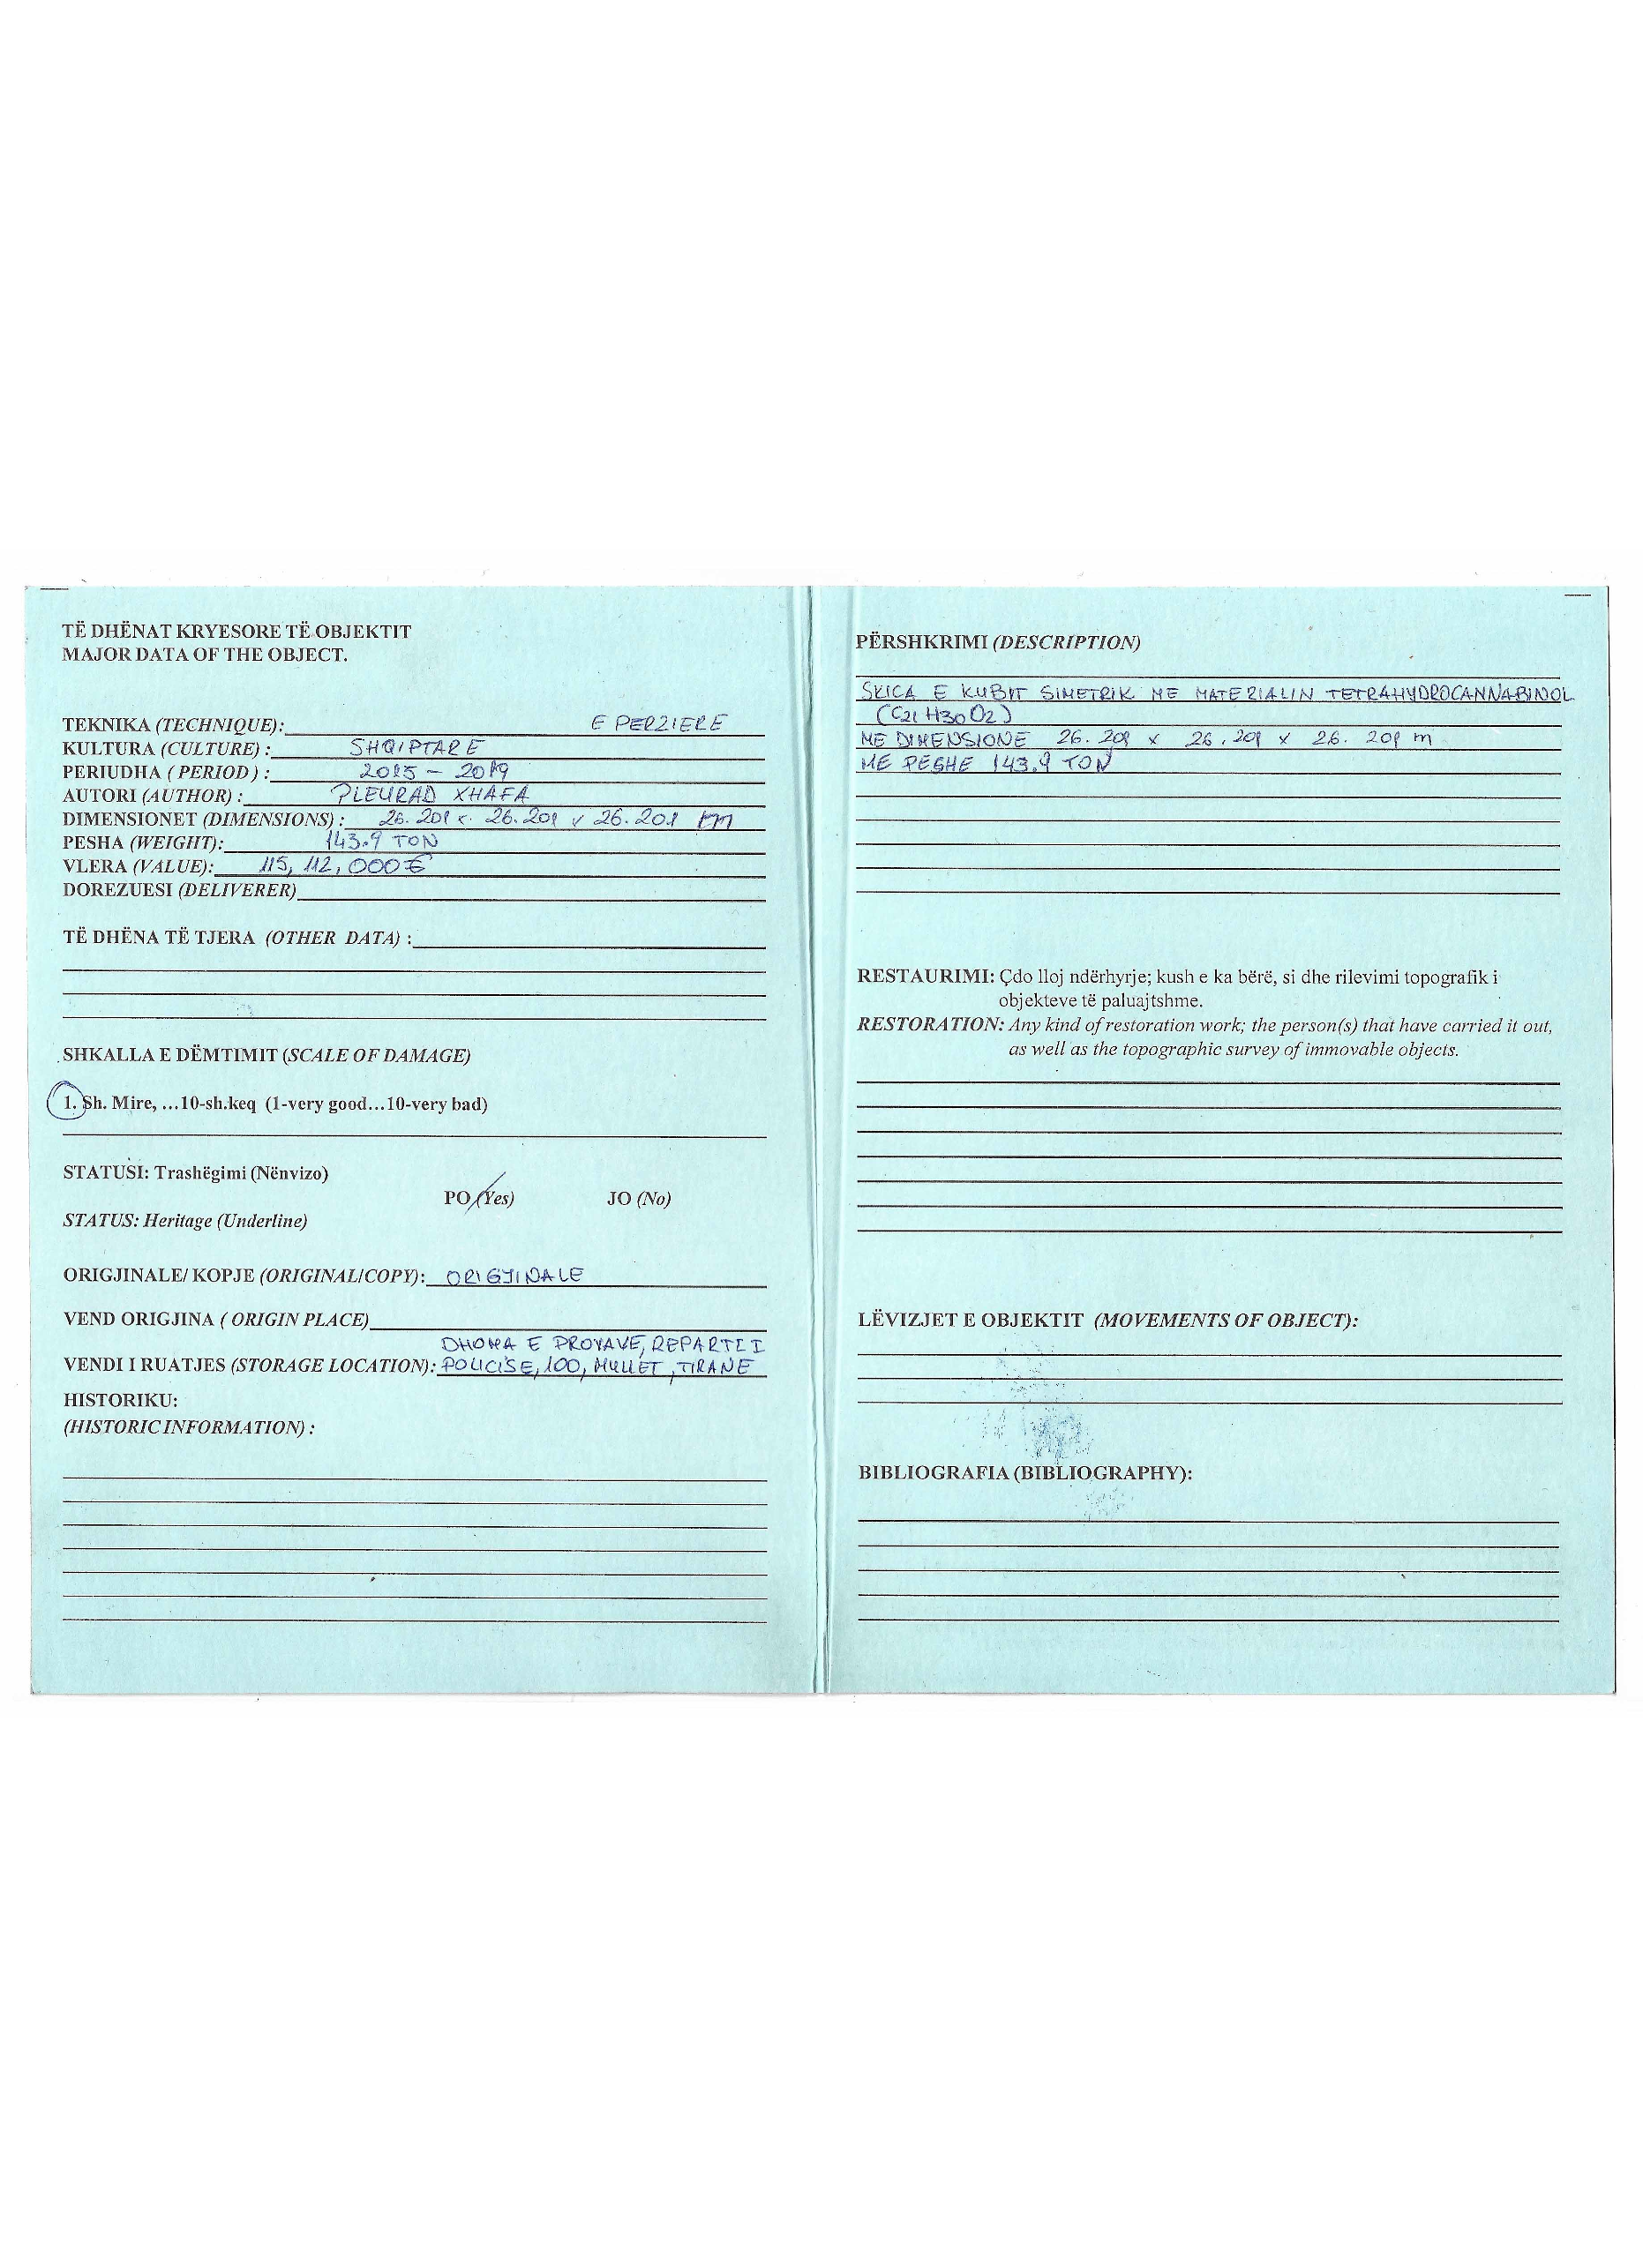 TË DHËNAT KRYESORE TË OBJEKTIT
MAJOR DATA OF THE OBJECT.
TEKNIKA (TECHNIQUE): E PERZIERE
KULTURA (CULTURE) : SHQIPTARE
PERIUDHA ( PERIOD ) : 2015 – 2019
AUTORI (AUTHOR) : PLEURAD XHAFA
DIMENSIONET (DIMENSIONS) : 26.201 x 26.201 x 26.201 m
PESHA (WEIGHT): 143.9 TON
VLERA (VALUE): 115, 112, 000 €
DOREZUESI (DELIVERER)
TË DHËNA TË TJERA (OTHER DATA) :
SHKALLA E DËMTIMIT (SCALE OF DAMAGE)
1. Sh. Mire, ...10-sh.keq (1-very good...10-very bad)
STATUSI: Trashëgimi (Nënvizo)
PO (Yes) JO (No)
STATUS: Heritage (Underline)
ORIGJINALE/ KOPJE (ORIGINAL/COPY): ORIGJINALE
VEND ORIGJINA ( ORIGIN PLACE)
DHOMA E PROVAVE, REPARTI I
VENDI I RUATJES (STORAGE LOCATION): POLICISE, 100, MULLET, TIRANE
HISTORIKU:
(HISTORIC INFORMATION) :
PËRSHKRIMI (DESCRIPTION)
SKICA E KUBIT SIMETRIK ME MATERIALIN TETRAHYDROCANNABINOL
(C21 H30 O2)
ME DIMENSIONE 26.201 x 26.201 x 26.201 m
ME PESHE 143.9 TON
RESTAURIMI: Çdo lloj ndërhyrje; kush e ka bërë, si dhe rilevimi topografik i
objekteve të paluajtshme.
RESTORATION: Any kind of restoration work; the person(s) that have carried it out,
as well as the topographic survey of immovable objects.
LËVIZJET E OBJEKTIT (MOVEMENTS OF OBJECT):
BIBLIOGRAFIA (BIBLIOGRAPHY):